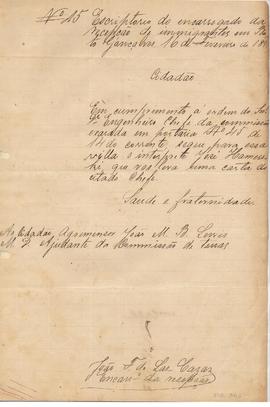 Nº 15 Escriptorio do encarregado da
recepção de immigrantes em Ben
to Gonçalves 16 de Fevereiro de 18
Cidadão
Em cumprimento a ordem do
Engenheiro Chefe da commissão
exarada em portaria Nº 45 de
14 do corrente, segue para essa
villa o interprete José
que vos leva uma carta do
cidadão Chefe.
Saude e fraternidade
Ao Cidadão Agrimensor José M. B.
M. D. Ajudante da Commissão de terras
João F. de
Encarº da recepção